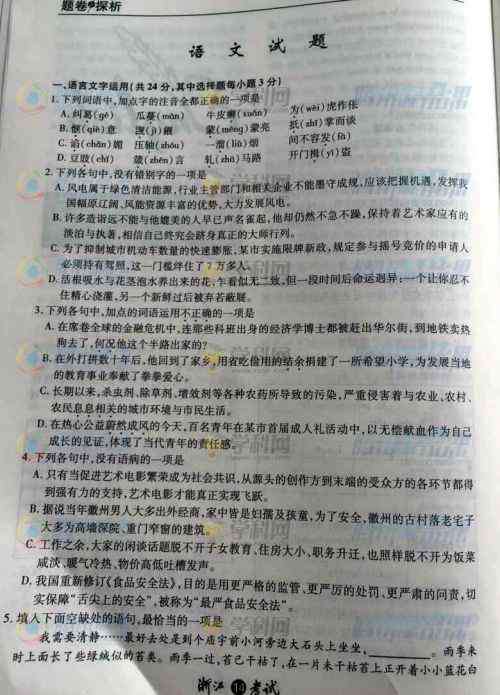 题卷与探析
语文试题
一、语言文字运用(共24分,其中选择题每小题3分)
1.下列词语中,加点字的注音全都正确的一项是
A.纠葛(gé) 瓜蔓(màn) 牛皮癣(xuǎn) 为(wèi)虎作伥
B.惬(qiè)意 溅(jì)鏾 蒙(mēng)蒙亮 抵(zhǐ)掌而谈
C.谄(chǎn)媚 压轴(zhóu) 一溜(liù)烟 间不容发(fà)
D.豆豉(chǐ) 箴(zhēn)言 轧(zhá)马路 开门揖(yī)盗
2.下列各句中,没有错别字的一项是
A.风电属于绿色清洁能源,行业主管部门和相关企业不能墨守成规,应该把握机遇,发挥我
国幅原辽阔、风能资源丰富的优势,大力发展风电。
B.许多造诣远不能与他媲美的人早已声名雀起,他却仍然不急不躁,保持着艺术家应有的
淡泊与执著,相信自己终究会跻身真正的大师行列。
C.为了抑制城市机动车数量的快速膨胀,某市实施限牌新政,规定参与摇号竞价的申请人
必须持有驾照,这一门槛绊住了7万多人。
D.活根吸水与花茎泡水养出来的花,乍看似无二致,但一段时间后命运迥异:一个让你忍不
住精心浇灌,另一个新鲜过后被弃若蔽屣。
3.下列各句中,加点的词语运用不正确的一项是
A.在席卷全球的金融危机中,连那些科班出身的经济学博士都被赶出华尔街,到地铁卖热
狗去了,何况他这个半路出家的?
B.在外打拼数十年后,他回到了家乡,用省吃俭用的结余捐建了一所希望小学,为发展当地
的教育事业奉献了拳拳爱心。
C.长期以来,杀虫剂、除草剂、增效剂等各种农药所导致的污染,严重侵害着与农业、农村、
农民息息相关的城市环境与市民生活。
D.在热心公益蔚然成风的今天,百名青年在某市首届成人礼活动中,以无偿献血作为自己
成长的见证,体现了当代青年的责任感。
4.下列各句中,没有语病的一项是
A.只有当促进艺术电影繁荣成为社会共识,从源头的创作方到末端的受众方的各环节都得
到强有力的支持,艺术电影才能真正实现飞跃。
B.据说当年徽州男人大多出外经商,家中皆是妇孺及孩童,为了安全,徽州的古村落老宅子
大多为高墙深院、重门窄窗的建筑。
C.工作之余,大家的闲谈话题脱不开子女教育、住房大小、职务升迁,也照样脱不开为饭菜
咸淡、暖气冷热、物价高低吐槽发声。
D.我国重新修订《食品安全法》,目的是用更严格的监管、更严厉的处罚、更严肃的问责,切
实保障“舌尖上的安全”,被称为“最严食品安全法”。
5.填入下面空缺处的语句,最恰当的一项是
我需要清静……最好去处是到个庙宇前小河旁边大石头上坐坐,________。雨季来
时上面长了些绿绒似的苔类。雨季一过,苔已干枯了,在一片未干枯苔上正开着小小蓝花白
浙江 14 考试